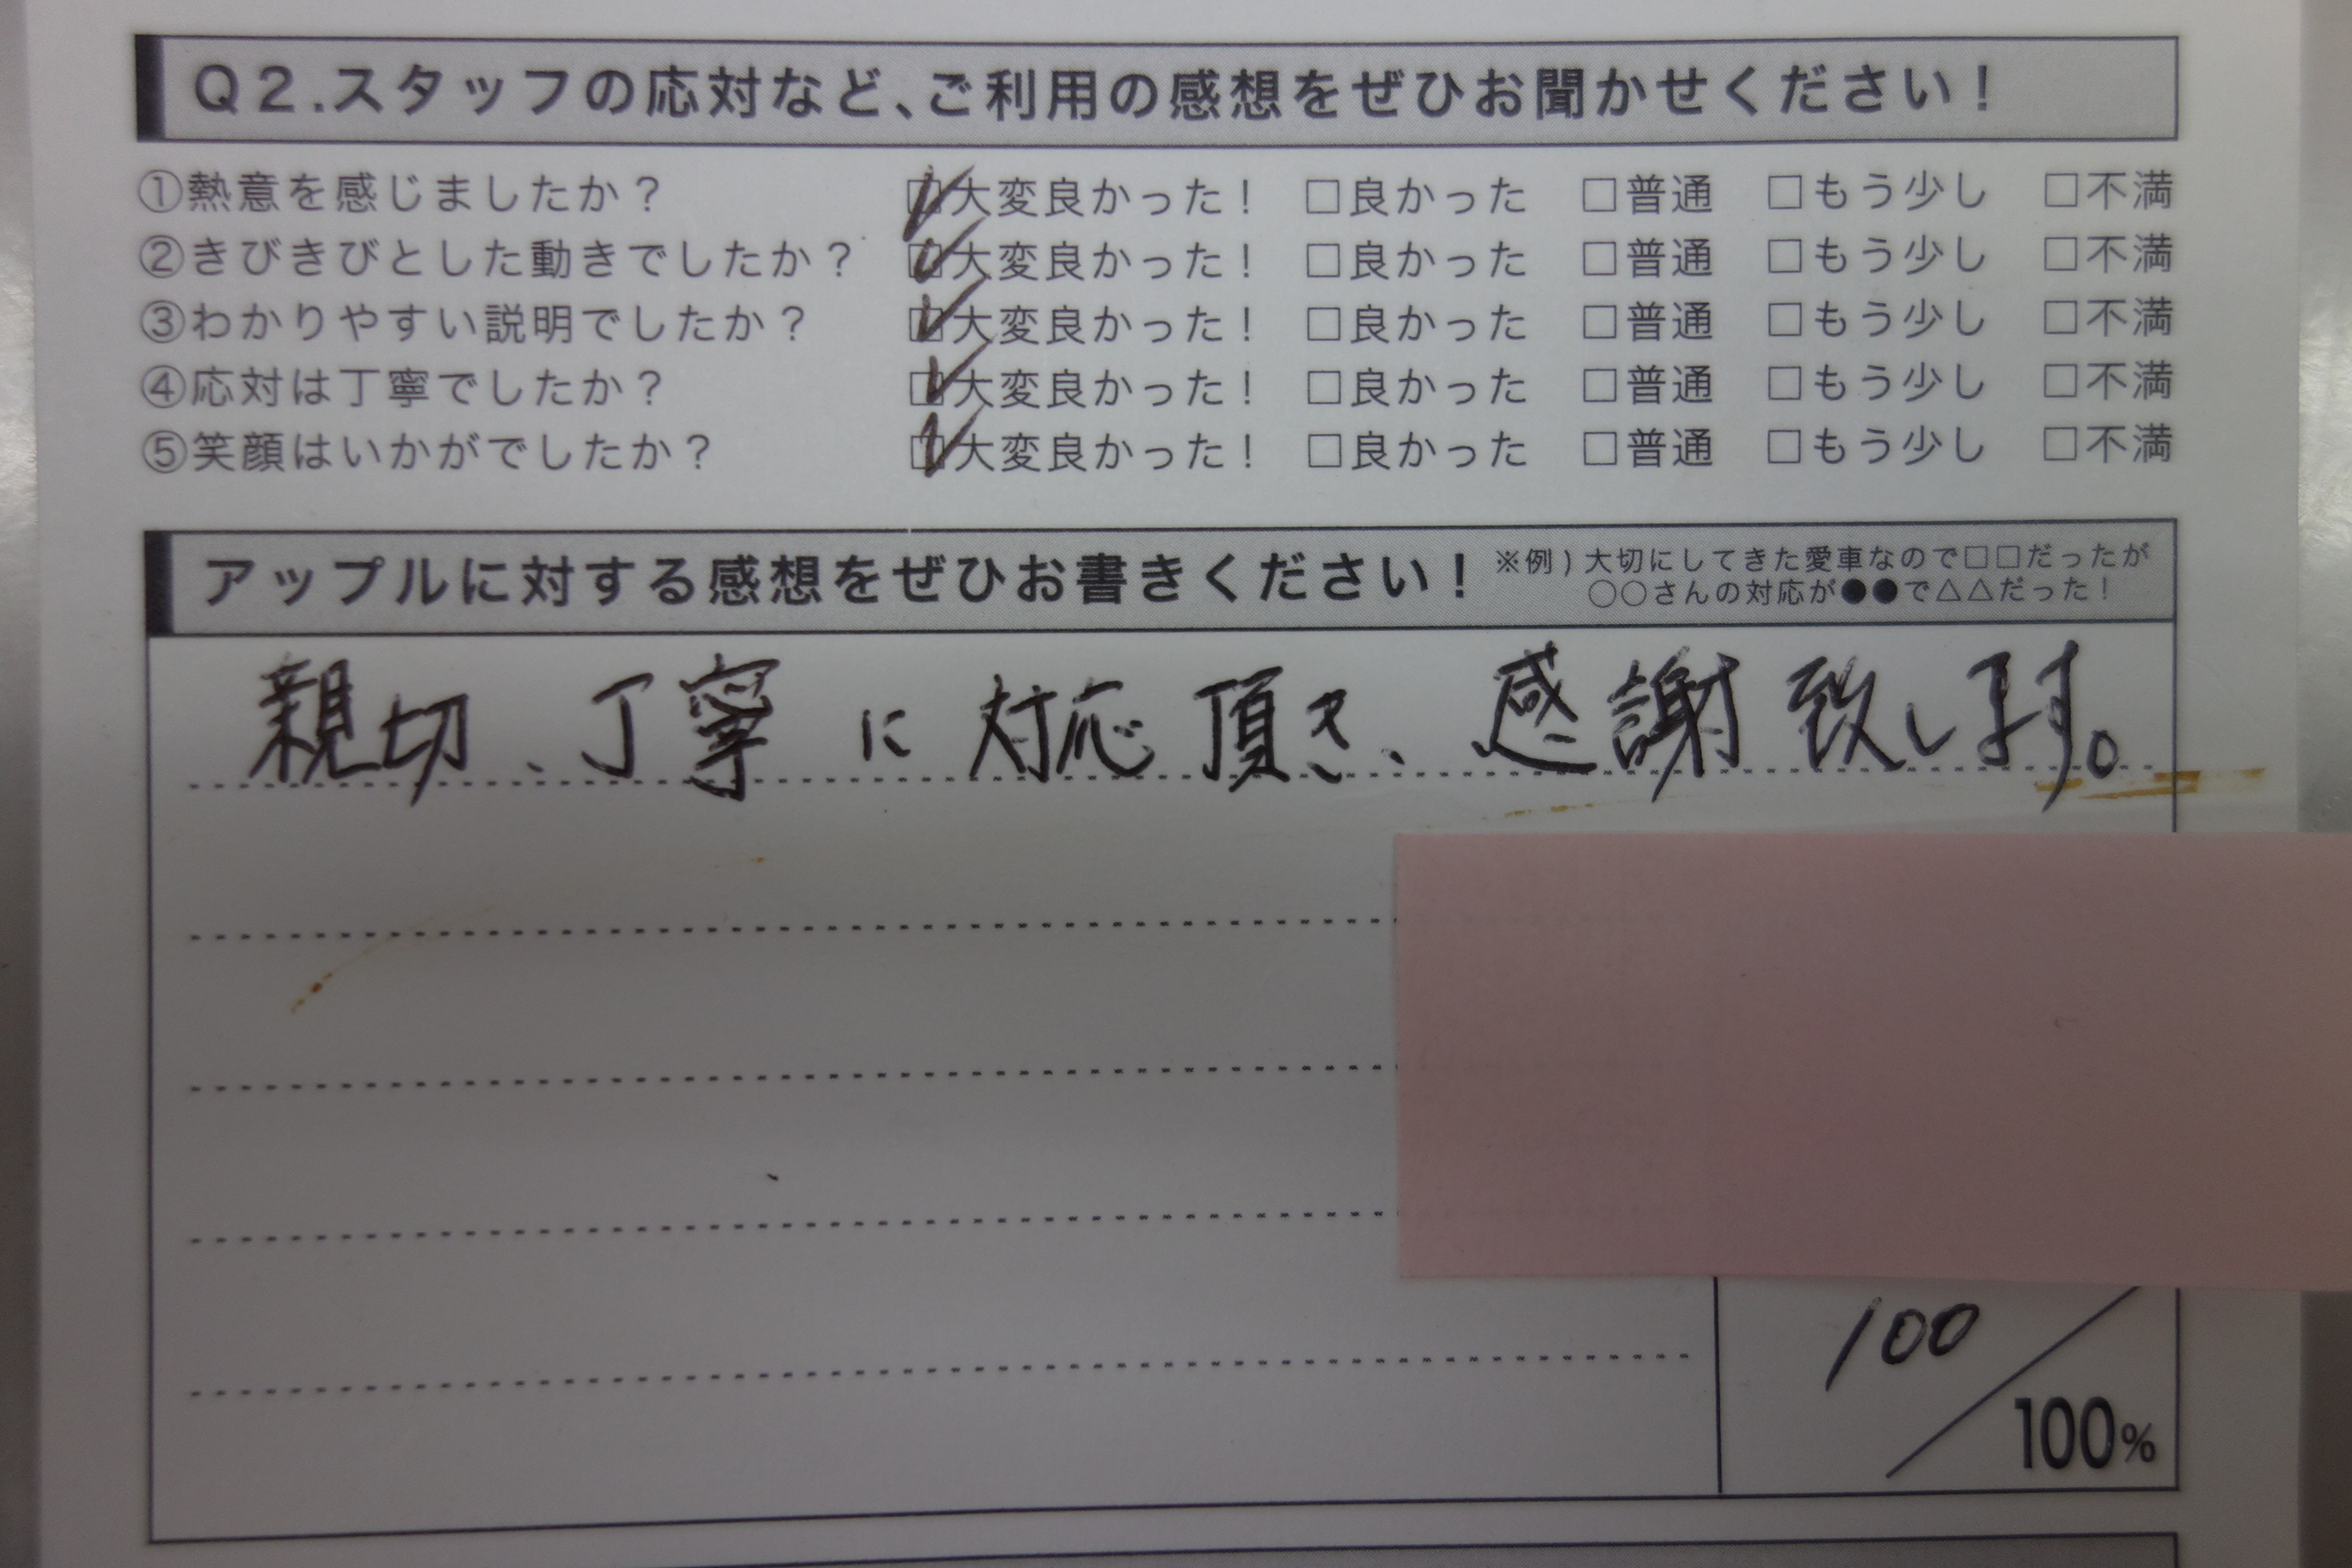 Q2.スタッフの応対など、ご利用の感想をぜひお聞かせください！
①熱意を感じましたか？ ☑大変良かった！ □良かった □普通 □もう少し □不満
②きびきびとした動きでしたか？ ☑大変良かった！ □良かった □普通 □もう少し □不満
③わかりやすい説明でしたか？ ☑大変良かった！ □良かった □普通 □もう少し □不満
④応対は丁寧でしたか？ ☑大変良かった！ □良かった □普通 □もう少し □不満
⑤笑顔はいかがでしたか？ ☑大変良かった！ □良かった □普通 □もう少し □不満
アップルに対する感想をぜひお書きください！ ※例）大切にしてきた愛車なので□□だったが
○○さんの対応が●●で△△だった！
親切、丁寧に対応頂き、感謝致します。
100
100%